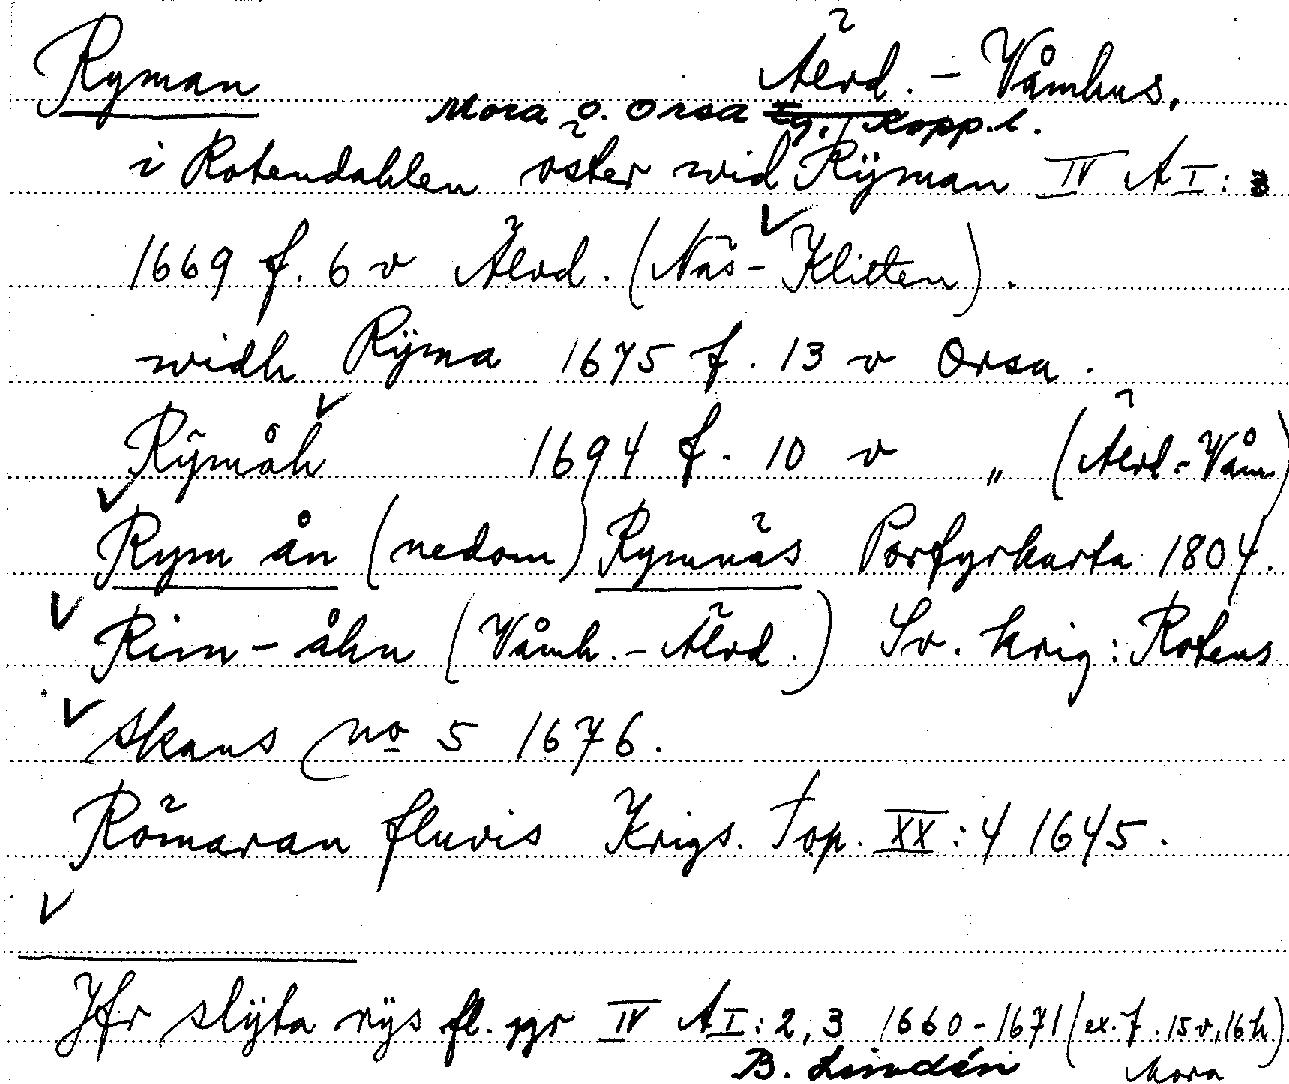 Ryman Älvd. - Våmhus.
Mora o. Orsa tg., Kopp. l.
i Rotendahlen öster wid Rÿman IV A I: 3
1669 f. 6 v Älvd. (Näs-Klitten).
widh Rÿma 1675 f. 13 v Orsa.
Rÿmåh 1694 f. 10 v „ (Älvd.-Våm)
Rym ån (nedom) Rymnäs Porfyrkarta 1804.
Rim-åhn (Våmh.-Älvd.) Sv. krig: Rotens
skans no 5 1676.
Römaran fluvis Krigs. Top. XX: 4 1645.
Jfr slÿta rÿs fl. ggr IV A I: 2, 3 1660-1671 (ex. f. 15 v, 16 h)
B. Lindén Mora